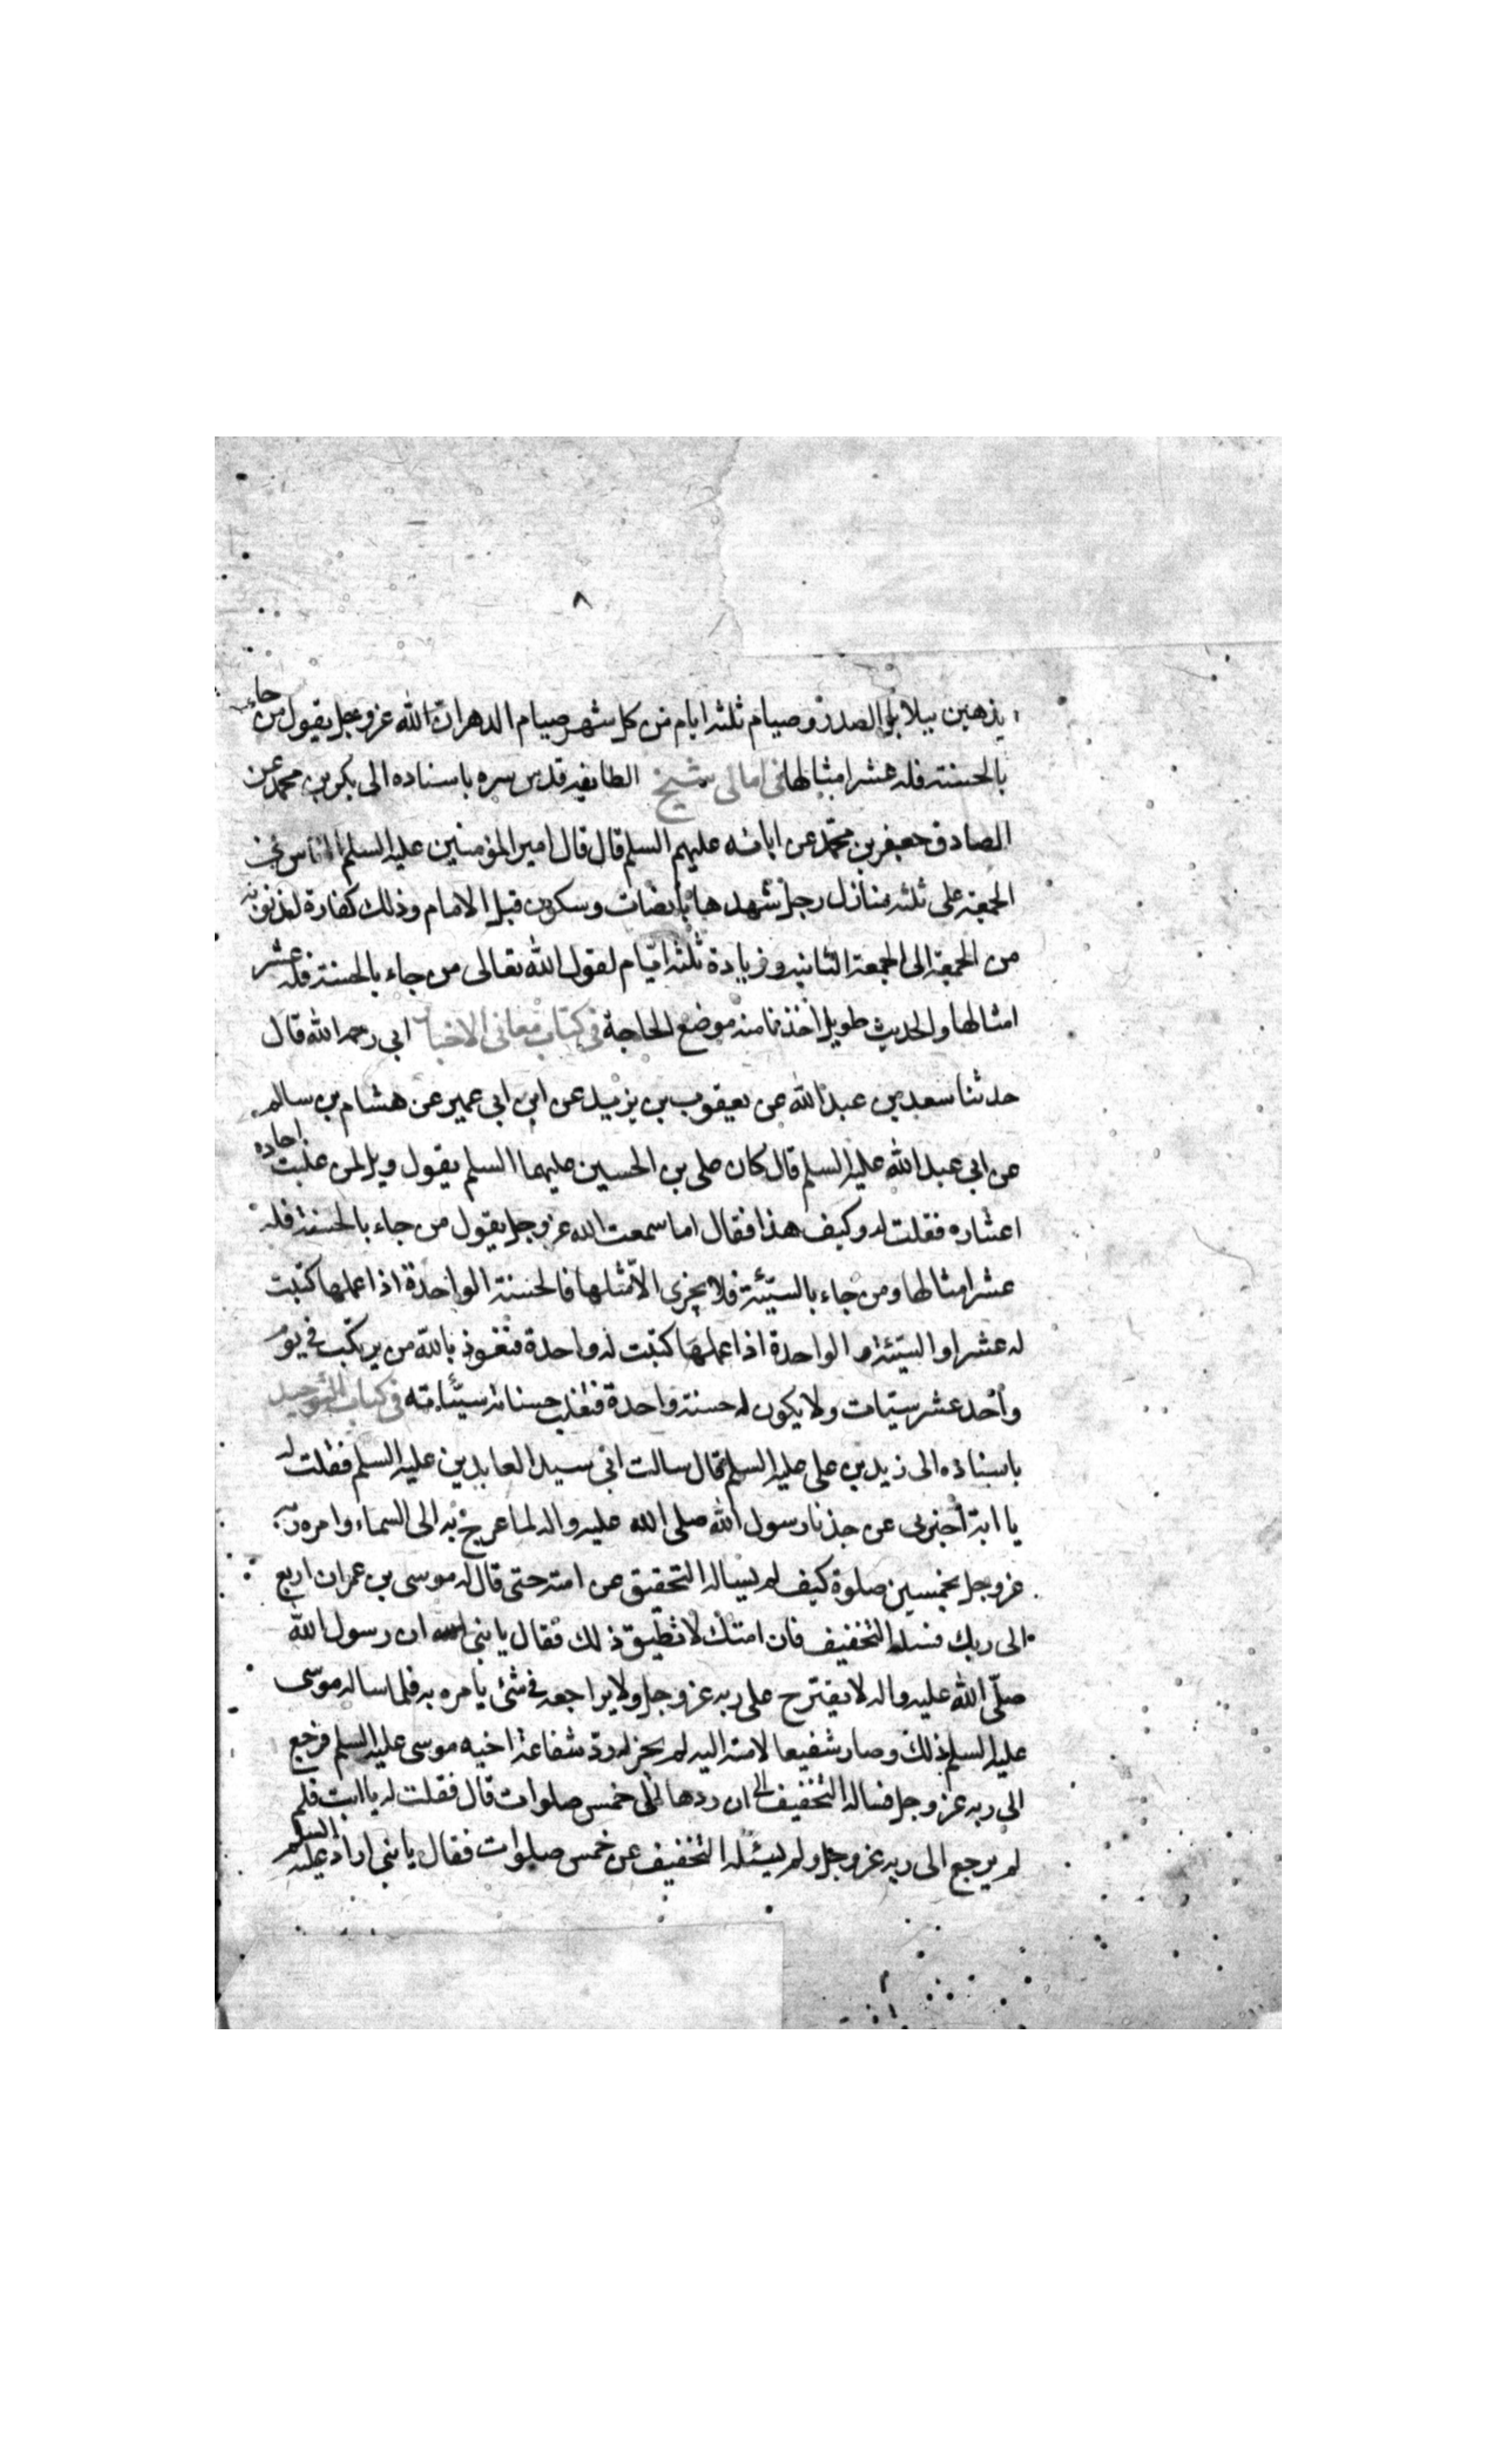 ٨
يذهبن ببلابل الصدر وصيام ثلثة ايام من كل شهر صيام الدهر ان الله عزوجل يقول من جاء
بالحسنة فله عشر امثالها فى امالى شيخ الطايفه قدس سره باسناده الى بكر بن محمد عن
الصادق جعفر بن محمد عن ابائه عليهم السلم قال قال امير المؤمنين عليه السلم الناس فى
الجمعة على ثلثة منازل رجل شهدها بانصات وسكون قبل الامام وذلك كفارة لذنوبه
من الجمعة الى الجمعة الثانيه وزيادة ثلثة ايام لقول الله تعالى من جاء بالحسنة فله عشر
امثالها والحديث طويل اخذنا منه موضع الحاجة فى كتاب معانى الاخبار ابى رحمه الله قال
حدثنا سعد بن عبد الله عن يعقوب بن يزيد عن ابن ابى عمير عن هشام بن سالم
عن ابى عبد الله عليه السلم قال كان على بن الحسين عليهما السلم يقول ويل لمن غلبت احاده
اعشاره فقلت له وكيف هذا فقال اما سمعت الله عزوجل يقول من جاء بالحسنة فله
عشر امثالها ومن جاء بالسيئة فلا يجزى الا مثلها فالحسنة الواحدة اذا عملها كتبت
له عشرا والسيئة الواحدة اذا عملها كتبت له واحدة فنعوذ بالله من يرتكب فى يوم
واحد عشر سيئات ولا يكون له حسنة واحدة فتغلب حسناته سيئاته فى كتاب التوحيد
باسناده الى زيد بن على عليه السلم قال سالت ابى سيد العابدين عليه السلم فقلت له
يا ابة اخبرنى عن جدنا رسول الله صلى الله عليه واله لما عرج به الى السماء وامره ربه
عزوجل بخمسين صلوة كيف لم يساله التخفيق عن امته حتى قال له موسى بن عمران ارجع
الى ربك فسله التخفيف فان امتك لا تطيق ذلك فقال يا بنى ان رسول الله
صلى الله عليه واله لا يقترح على ربه عزوجل ولا يراجعه فى شئ يامره به فلما ساله موسى
عليه السلم ذلك وصار شفيعا لامته اليه لم يجز له رد شفاعة اخيه موسى عليه السلم فرجع
الى ربه عزوجل فساله التخفيف الى ان ردها الى خمس صلوات قال فقلت له يا ابت فلم
لم يرجع الى ربه عزوجل ولم يسئله التخفيف عن خمس صلوات فقال يا بنى اراد عليه السلم